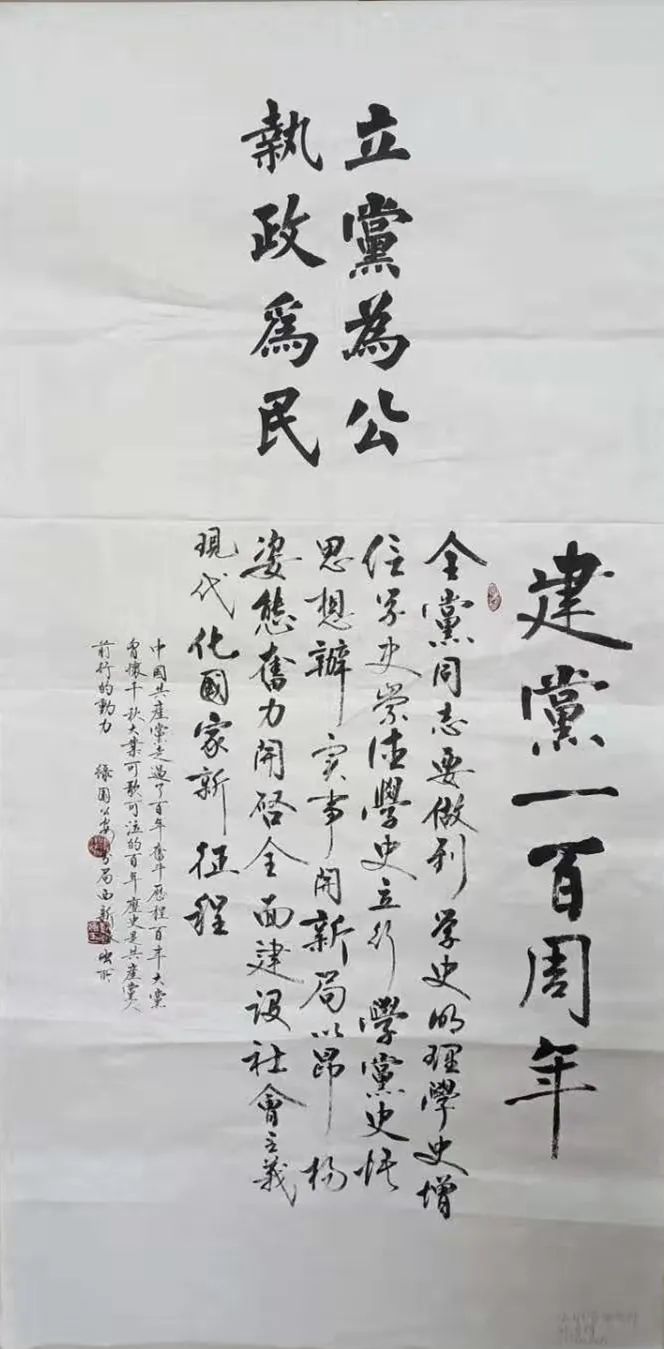 立黨為公
執政爲民
建黨一百周年
全黨同志要做到学史明理學史增
信学史崇德學史立行學黨史悟
思想辦实事開新局以昂揚
姿態奮力開啓全面建设社會主義
現代化國家新征程
中国共產党走過了百年奮斗历程百年大黨
胸懷千秋大業可歌可泣的百年歷史是共產黨人
前行的動力 绿園公安分局西新 出所